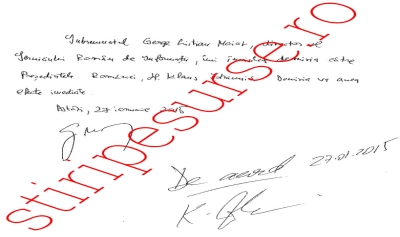 Subsemnatul George Cristian Maior, director al
Serviciului Român de Informații, îmi înaintez demisia către
Președintele României, dl Klaus Iohannis. Demisia va avea
efecte imediate.
Astăzi, 27 ianuarie 2015
De acord 27.01.2015
stiripesurse.ro